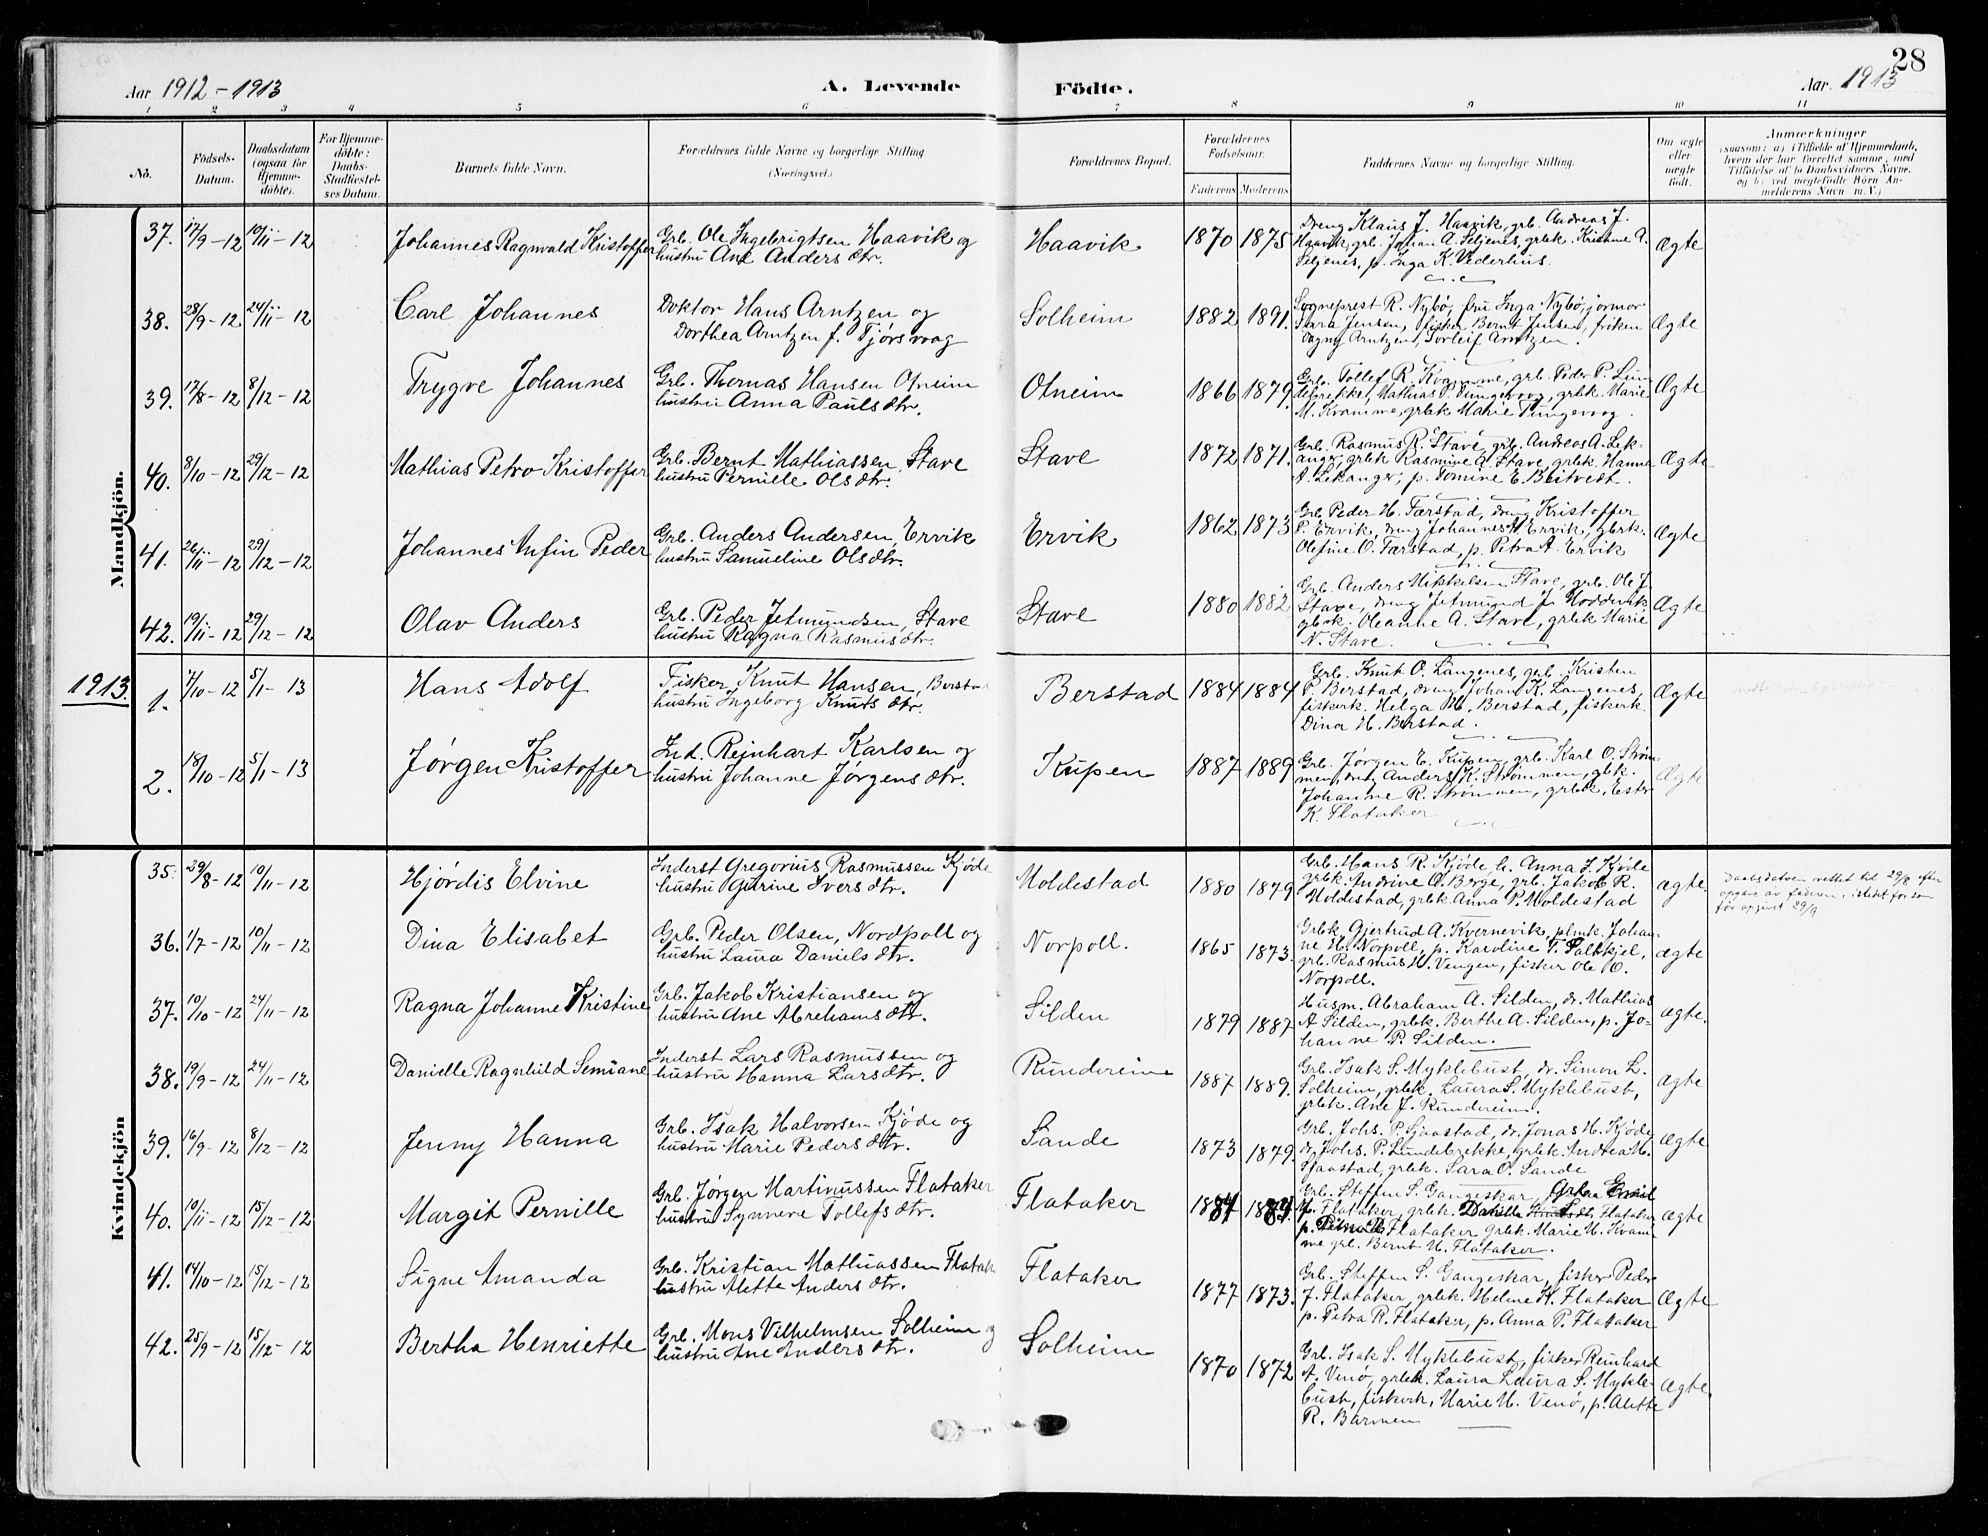 28
Aar 1912-1913 A. Levende Födte. Aar. 1913
1 2 3 4 5 6 7 8 9 10 11
No. Födsels-Datum. Daabsdatum (ogsaa for Hjemme-döbte). For Hjemme-döbte: Daabs-Stadfæstel-ses Datum. Barnets fulde Navn. Forældrenes fulde Navne og borgerlige Stilling (Næringsvei.) Forældrenes Bopæl. Forældrenes Fødselsaar. Faderens Moderens Faddernes Navne og borgerlige Stilling. Om ægte eller uægte født. Anmærkninger
(saasom: a) i Tilfælde af Hjemmedaab,
hvem der har forrettet samme, med
Tilføielse af to Daabsvidners Navne,
og b) ved uægtefödte Börn An-
melderens Navn m. V.)
Mandkjön.
37. 17/9-12 10/11-12 Johannes Ragnvald Kristoffer
Grb. Ole Ingebrigtsen Haavik og
hustru Ane Andersdtr.
Haavik 1870 1875
Dreng Klaus J. Haavik, grb. Andreas J.
Haavik, grb. Johan A. Seljenes, grbk. Kristine A.
Seljenes, p. Inga K. Vederhus.
Ægte
38. 28/9-12 24/11-12 Carl Johannes
Doktor Hans Arntzen og
Dorthea Arntzen f. Tjørsvaag
Solheim 1882 1891.
Sogneprest R. Nybø, fru Inga Nybø, jormor
Sara Jensen, fisker Bernt Jensen, frøken
Dagny Arntzen, Torleif Arntzen.
Ægte
39. 17/8-12 8/12-12 Trygve Johannes
Grb. Thomas Hansen Otneim
hustru Anna Paulsdtr.
Otneim 1866 1879.
Grb. Tollef R. Kvamme, grb. Peder P. Lun-
debrekke, Mathias P. Tungevaag, grbk. Marie
M. Kvamme, grbk Marie Tungevaag.
Ægte
40. 8/10-12 29/12-12 Mathias Petro Kristoffer
Grb. Bernt Mathiassen, Stave
hustru Pernille Olsdtr.
Stave 1872 1871.
Grb. Rasmus R. Stave, grb. Andreas A. Lek-
anger, grbk Rasmine A. Stave, grbk. Hanna
A. Lekanger, p. Tomine E. Breitvedt.
Ægte
41. 26/11-12 29/12-12 Johannes Anfin Peder
Grb. Anders Andersen, Ervik
hustru Samueline Olsdtr.
Ervik 1862 1873
Grb Peder H. Færstad, dreng Kristoffer
P. Ervik, dreng Johannes H Ervik, gbrk.
Olefine O. Færstad, p. Petra A. Ervik
Ægte
42. 19/11-12 29/12-12 Olav Anders
Grb. Peder Jetmundsen, Stave
hustru Ragna Rasmusdtr.
Stave 1880 1882
Grb. Anders Mikkelsen Stave, grb. Ole J.
Stave, dreng Jetmund J. Hoddevik
gbrk. Oleanne A. Stave, grbk Marie
N. Stave.
Ægte
1913
1. 7/10-12 5/1-13 Hans Adolf
Fisker Knut Hansen, Berstad
hustru Ingeborg Knutsdtr.
Berstad 1884 1884
Grb. Knut O. Langenes, grb. Kristen
P. Berstad, dreng Johan K. Langenes,
fiskerk. Helga H. Berstad, fiskerk.
Dina H. Berstad.
Ægte
2. 18/10-12 5/1-13 Jørgen Kristoffer
Ind. Reinhart Karlsen og
hustru Johanne Jørgensdtr.
Kupen 1887 1889
Grb. Jørgen E. Kupen, grb. Karl O. Strøm-
men, dreng Anders K. Strømmen, gbk.
Johanne R. Strømmen, grbk, Ester
K. Flataker
Ægte
Kvindekjön
35. 29/8-12 10/11-12 Hjördis Elvine
Inderst Gregorius Rasmussen Kjøde
hustru Gurine Iversdtr.
Moldestad 1880 1879
Grb. Hans R. Kjøde, h. Anna J. Kjøde
grbk Andrine O. Berge, grb. Jakob R.
Moldestad, grbk. Anna P. Moldestad
ægte.
Daabsdatoen rettet til 29/8 efter
opgave av faderen, istedet for som
før opgivet 29/9.
36. 1/7-12 10/11-12 Dina Elisabet
Grb. Peder Olsen, Nordpoll og
hustru Laura Danielsdtr.
Norpoll. 1865 1873.
Grbk. Gjertrud A. Kvernevik, plmk. Johan-
ne H. Norpoll, p. Karoline T. Salthjel,
grb. Rasmus H. Vengen, fisker Ole O.
Norpoll.
ægte
37. 10/10-12 24/11-12 Ragna Johanne Kristine
Grb. Jakob Kristiansen og
hustru Ane Abrehamsdtr.
Silden 1879 1887
Husm. Abraham A. Silden, dr. Mathias
A Silden, grbk. Berthe A. Silden, p. Jo-
hanne P. Silden.
ægte.
38. 19/9-12 24/11-12 Danielle Ragnhild Semiane
Inderst Lars Rasmussen og
hustru Hanna Larsdtr.
Rundereim 1887 1889.
Grb. Isak S. Myklebust, dr. Simon L.
Solheim, grbk. Laura S. Myklebust,
grbk. Ane J. Rundereim.
ægte
39. 16/9-12 8/12-12 Jenny Hanna
Grb. Isak Halvorsen Kjøde og
hustru Marie Pedersdtr.
Sande 1873 1879.
Grb. Johs. P. Sjaastad, dr. Jonas H. Kjøde,
dr. Johs. P. Lundebrekke, grbk. Andrea M.
Sjaastad, grbk. Sara O. Sande
Ægte
40. 10/11-12 15/12-12 Margit Pernille
Grb. Jørgen Martinussen Flataker
hustru Synneve Tollefsdtr.
Flataker 1884 1884.
Grb. Steffen S. Gangeskar,
J. Flataker, grbk. Danielle Flataker
p. Flataker grbk. Marie M. Kvam-
me grb. Bernt M. Flataker.
ægte
41. 14/10-12 15/12-12 Signe Amanda
Grb. Kristian Mathiassen Flatak
hustru Alette Andersdtr.
Flataker 1877 1873.
Grb. Steffen S. Gangeskar, fisker Peder
J. Flataker, grbk. Helene K. Flataker
p. Petra R. Flataker, p. Anna P. Flataker
Ægte
42. 25/9-12 15/12-12 Bertha Henriette
Grb. Mons Vilhelmsen Solheim og
hustru Ane Andersdtr.
Solheim 1870 1872
Grb. Isak S. Myklebust, fisker Reinhard
A. Venø, grbk. Laura Laura S. Mykle-
bust, fiskerk, Marie M. Venø, p. Alette
R. Barmen
Ægte.